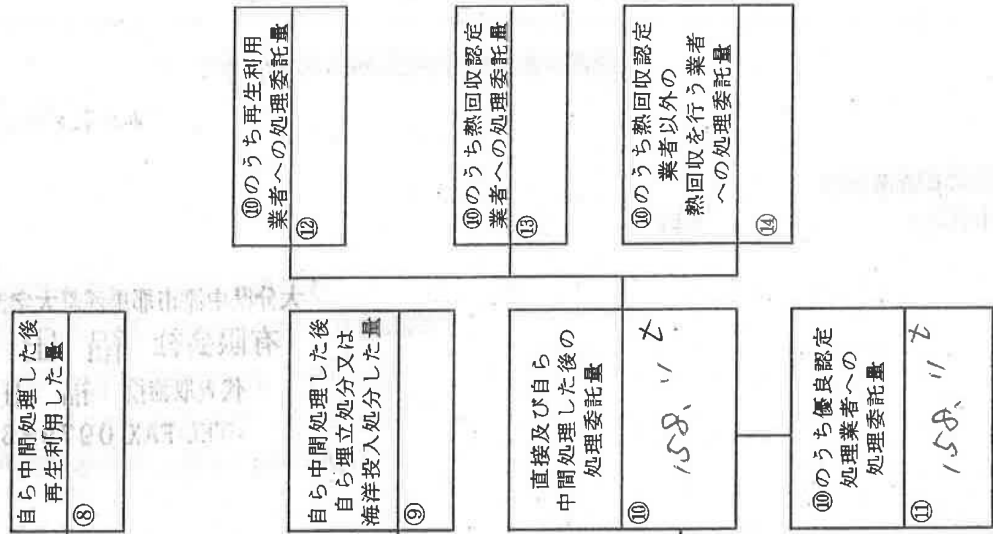 自ら中間処理した後
再生利用した量
⑧
自ら中間処理した後
自ら埋立処分又は
海洋投入処分した量
⑨
直接及び自ら
中間処理した後の
処理委託量
⑩
158.11 t
⑩のうち優良認定
処理業者への
処理委託量
⑪
158.11 t
⑩のうち再生利用
業者への処理委託量
⑫
⑩のうち熱回収認定
業者への処理委託量
⑬
⑩のうち熱回収認定
業者以外の
熱回収を行う業者
への処理委託量
⑭
有限会社